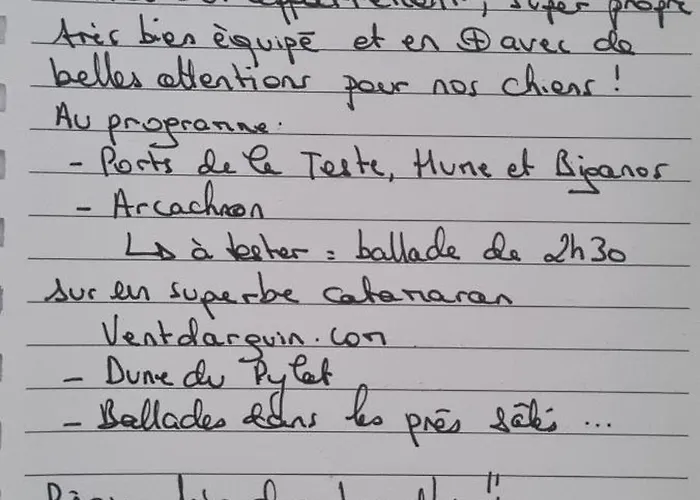 super propre
très bien équipé et en ⊕ avec de
belles attentions pour nos chiens !
Au programme :
- Ports de la Teste, Hume et Biganos
- Arcachon
↳ à tester : ballade de 2h30
sur en superbe catamaran
Ventdarguin.com
- Dune du Pylat
- Ballades dans les prés salés ...
!!